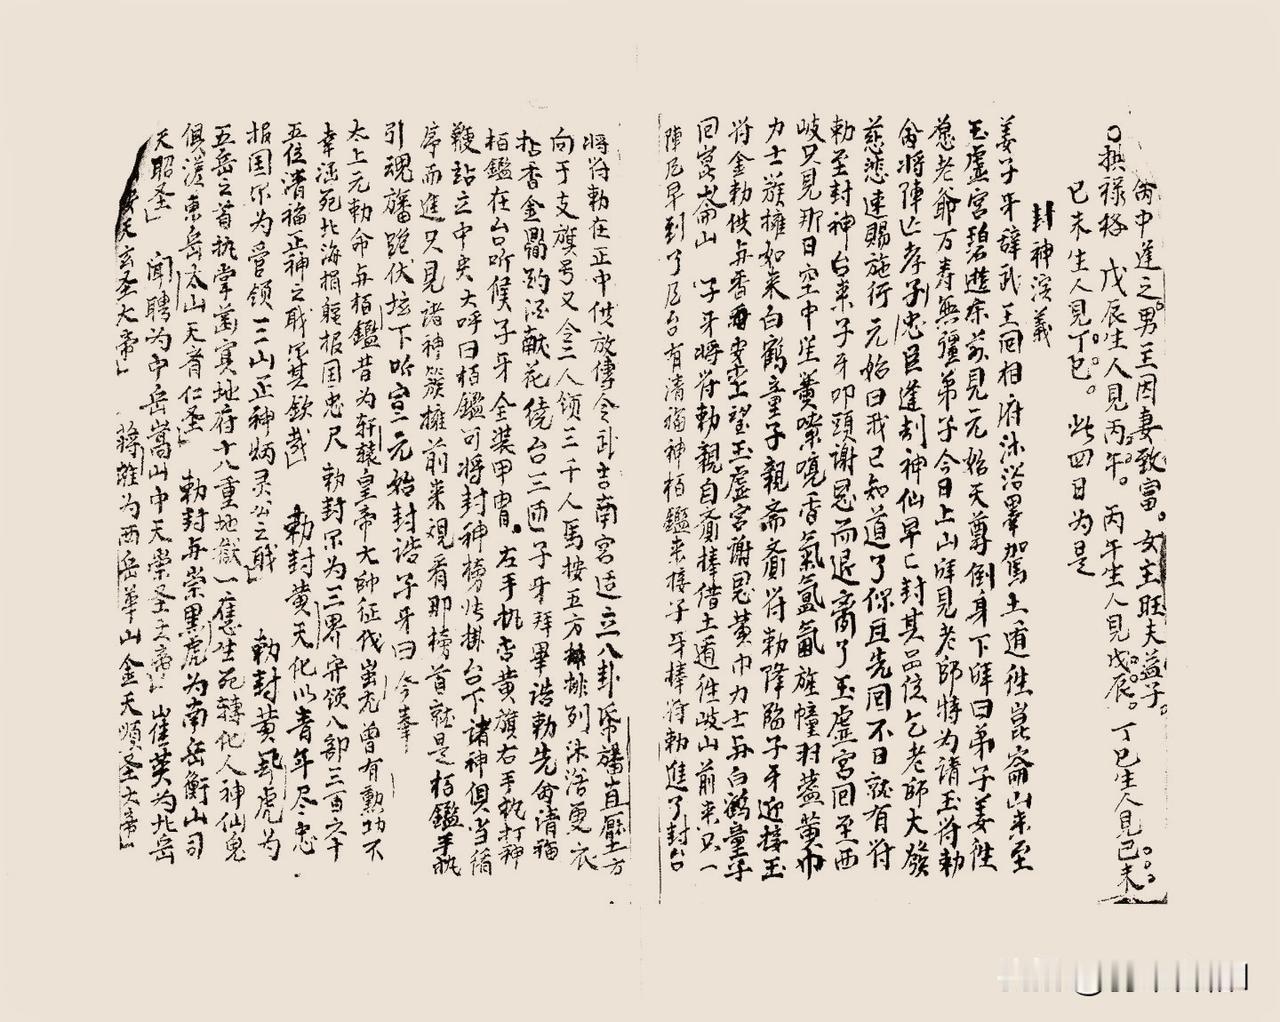 命中逢之男主因妻致富。女主旺夫益子。
拱禄格 戊辰生人見丙午。丙午生人見戊辰。丁巳生人見己未。
己未生人見丁巳。此四日为是
封神演義
姜子牙辞武王回相府沐浴畢駕土遁徃崑崙山来至
玉虚宫 見元始天尊倒身下拜曰弟子姜
愿老爺万寿無疆弟子今日上山拜見老師特为請玉符勅
命将陣亡孝子忠臣逢刧神仙早亡封其品位乞老師大發
慈悲連賜施行元始曰我已知道了你且先回不日就有符
勅至封神台来子牙叩頭謝恩而退离了玉虚宫回至西
岐只見那日空中笙簧嘹喨香氣氤氳旌幢羽盖黄巾
力士簇擁如来白鶴童子親斋 符勅降臨子牙迎接玉
符金勅供与香 望玉虚宫謝恩黄巾力士与白鶴童子
回崑崙山 子牙将符勅親自 捧借土遁徃岐山前来只一
陣 早到了 台有清福神栢鑑来接子牙捧符勅進了封台
将符勅在正中供放傳令 吉南宫适立八卦 旛直壓 方
向于支旗号又令二人领三千人馬按五方排列沐浴更衣
拈香金 酌酒献花绕台三匝子牙拜畢诰勅先命清福
栢鑑在台听候子牙全装甲冑。左手执杏黄旗右手执打神
鞭站立中央大呼曰栢鑑可将封神榜张掛台下諸神俱当循
序而進只見诸神簇擁前来观看那榜首就是栢鑑手执
引魂旛跪伏坛下听宣元始封诰子牙曰今奉
太上元勅命与栢鑑昔为轩辕皇帝大帥征伐蚩尤曾有勲功不
幸 死北海捐軀报国忠 勅封尔为三界 领八部三百六十
五位清福正神之职尔其欽哉 勅封黄天化以青年尽忠
报国尔为管领三山正神炳灵公之职 勅封黄飞虎为
五岳之首执掌 冥地府十八重地獄一應生死轉化人神仙鬼
俱 東岳太山天齊仁圣 勅封与崇黑虎为南岳衡山司
天昭圣 闻聘为中岳嵩山中天崇圣大帝 崔英为北岳
 天玄圣大帝 蒋雄为西岳華山金天順圣大帝